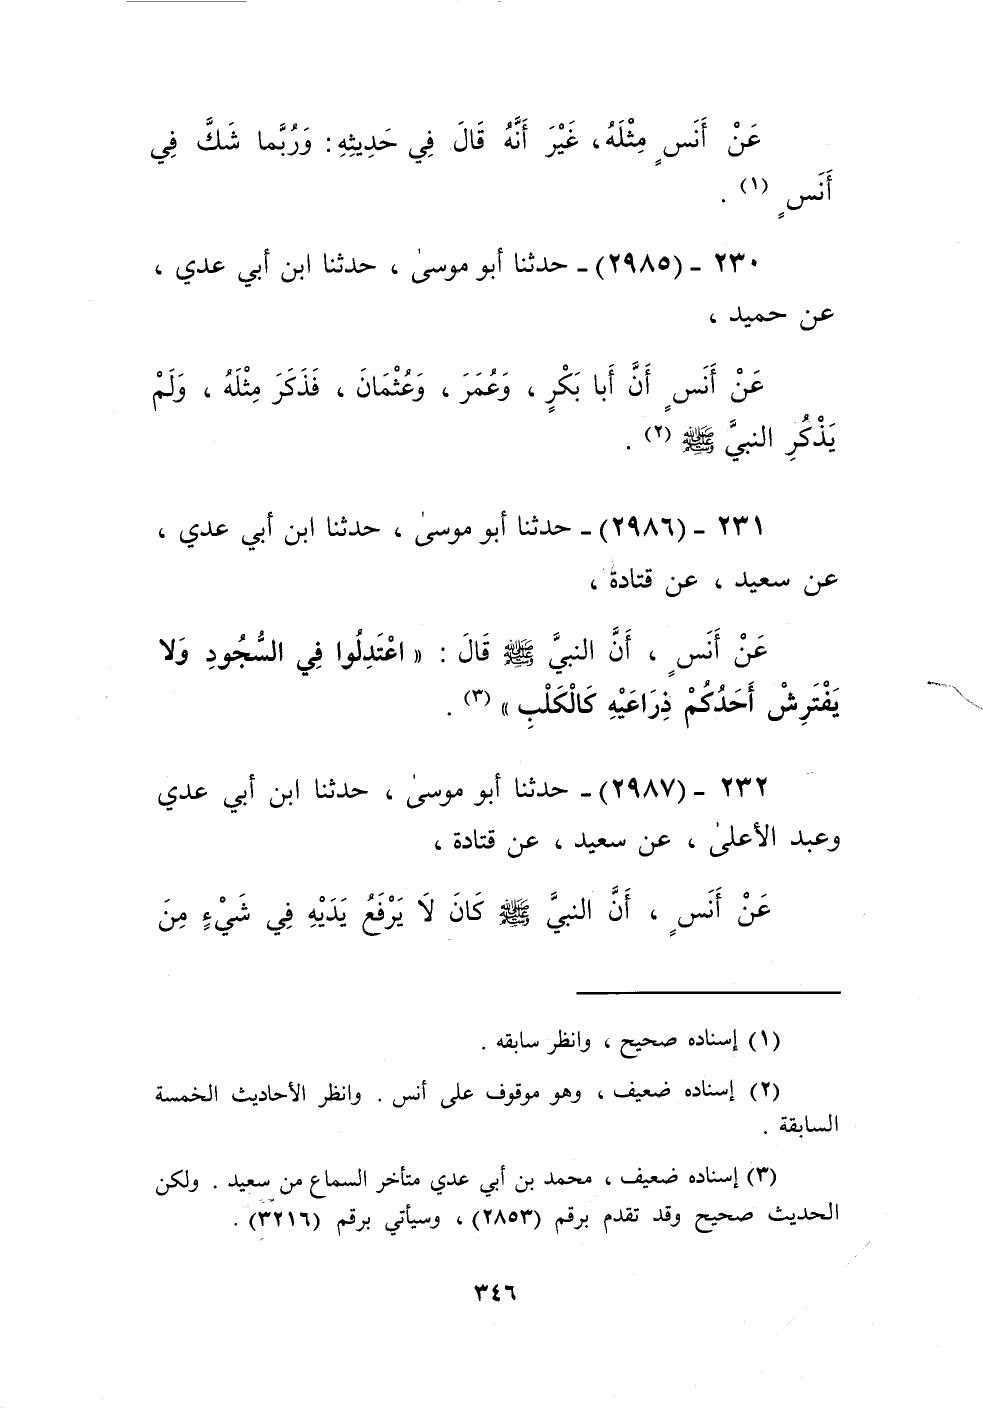 عَنْ أَنَسٍ مِثْلَهُ، غَيْرَ أَنَّهُ قَالَ فِي حَدِيثِهِ: وَرُبَّما شَكَّ فِي
أَنَسٍ (١) .
٢٣٠ ـ (٢٩٨٥) ـ حدثنا أبو موسىٰ ، حدثنا ابن أبي عدي ،
عن حميد ،
عَنْ أَنَسٍ أَنَّ أَبا بَكْرٍ ، وَعُمَرَ ، وَعُثْمَانَ ، فَذَكَرَ مِثْلَهُ ، وَلَمْ
يَذْكُرِ النبيَّ ﷺ (٢) .
٢٣١ ـ (٢٩٨٦) ـ حدثنا أبو موسىٰ ، حدثنا ابن أبي عدي ،
عن سعيد ، عن قتادة ،
عَنْ أَنَسٍ ، أَنَّ النبيَّ ﷺ قَالَ : « اعْتَدِلُوا فِي السُّجُودِ وَلا
يَفْتَرِشْ أَحَدُكُمْ ذِرَاعَيْهِ كَالْكَلْبِ » (٣) .
٢٣٢ ـ (٢٩٨٧) ـ حدثنا أبو موسىٰ ، حدثنا ابن أبي عدي
وعبد الأعلىٰ ، عن سعيد ، عن قتادة ،
عَنْ أَنَسٍ ، أَنَّ النبيَّ ﷺ كَانَ لَا يَرْفَعُ يَدَيْهِ فِي شَيْءٍ مِنَ
(١) إسناده صحيح ، وانظر سابقه .
(٢) إسناده ضعيف ، وهو موقوف على أنس . وانظر الأحاديث الخمسة
السابقة .
(٣) إسناده ضعيف ، محمد بن أبي عدي متأخر السماع من سعيد . ولكن
الحديث صحيح وقد تقدم برقم (٢٨٥٣) ، وسيأتي برقم (٣٢١٦) .
٣٤٦